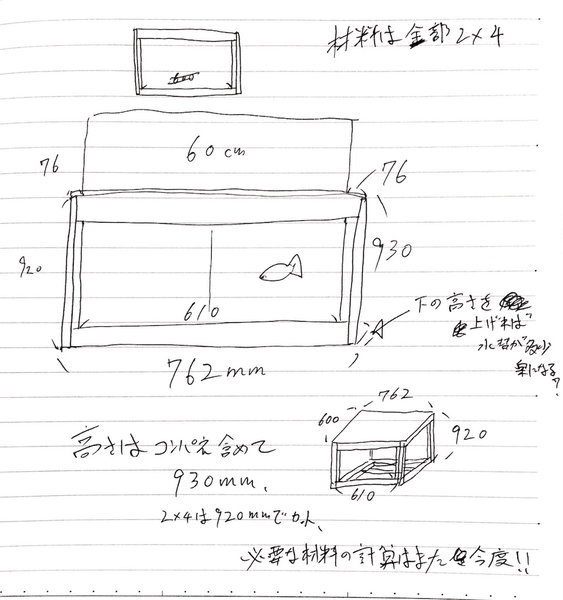 材料は全部2×4
600
60cm
76
76
920
930
610
762mm
下の高さを
上げれば
水替が多少
楽になる?
762
600
920
610
高さはコンパネ含めて
930mm、
2×4は920mmでカット、
必要な材料の計算はまた今度!!